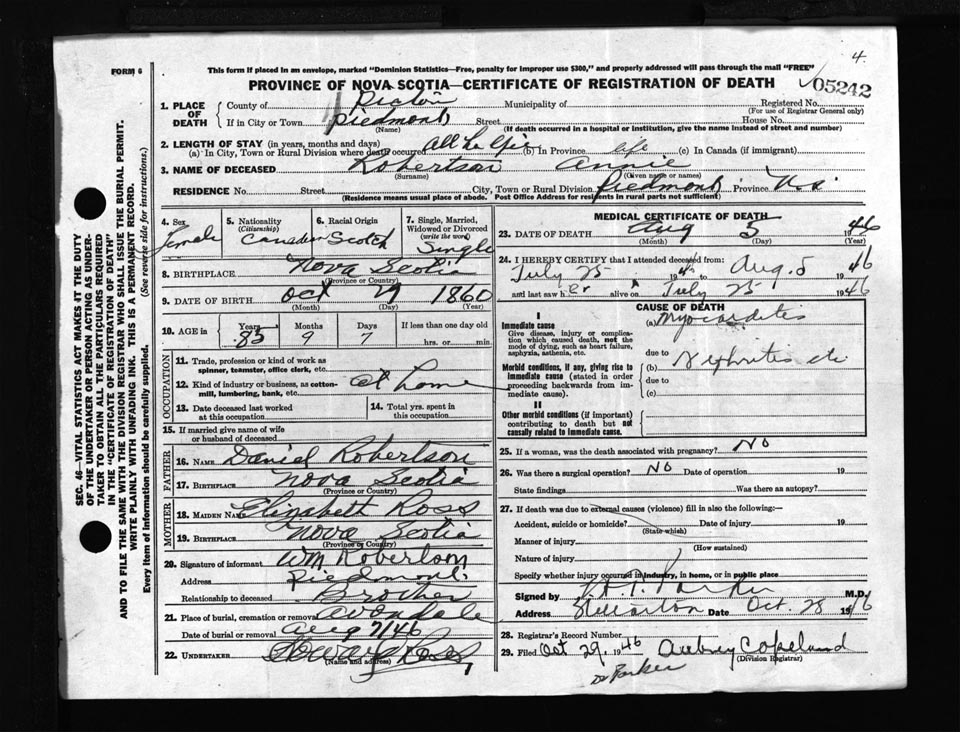 4.
FORM 6
This form if placed in an envelope, marked "Dominion Statistics—Free, penalty for improper use $300," and properly addressed will pass through the mail "FREE"
PROVINCE OF NOVA SCOTIA—CERTIFICATE OF REGISTRATION OF DEATH
05242
SEC. 46—VITAL STATISTICS ACT MAKES IT THE DUTY
OF THE UNDERTAKER OR PERSON ACTING AS UNDER-
TAKER TO OBTAIN ALL THE PARTICULARS REQUIRED
IN THE "CERTIFICATE OF REGISTRATION OF DEATH"
AND TO FILE THE SAME WITH THE DIVISION REGISTRAR WHO SHALL ISSUE THE BURIAL PERMIT.
WRITE PLAINLY WITH UNFADING INK. THIS IS A PERMANENT RECORD.
Every item of information should be carefully supplied. (See reverse side for instructions.)
1. PLACE OF DEATH
County of Pictou Municipality of Registered No.
(For use of Registrar General only)
If in City or Town Piedmont Street House No.
(Name) (If death occurred in a hospital or institution, give the name instead of street and number)
2. LENGTH OF STAY (in years, months and days)
(a) In City, Town or Rural Division where death occurred All her life (b) In Province life (c) In Canada (if immigrant)
3. NAME OF DECEASED Robertson Annie
(Surname) (Given name or names)
RESIDENCE No. Street City, Town or Rural Division Piedmont Province N.S.
(Residence means usual place of abode. Post Office Address for residents in rural parts not sufficient)
4. Sex Female
5. Nationality (Citizenship) Canadian
6. Racial Origin Scotch
7. Single, Married, Widowed or Divorced (write the word) Single
8. BIRTHPLACE Nova Scotia
(Province or Country)
9. DATE OF BIRTH Oct 29 1860
(Month) (Day) (Year)
10. AGE in Years Months Days If less than one day old
85 9 7 hrs. or min.
OCCUPATION
11. Trade, profession or kind of work as
spinner, teamster, office clerk, etc.
12. Kind of industry or business, as cotton-
mill, lumbering, bank, etc. at home
13. Date deceased last worked
at this occupation
14. Total yrs. spent in
this occupation
15. If married give name of wife
or husband of deceased
FATHER
16. NAME Daniel Robertson
17. BIRTHPLACE Nova Scotia
(Province or Country)
MOTHER
18. MAIDEN NAME Elizabeth Ross
19. BIRTHPLACE Nova Scotia
(Province or Country)
20. Signature of informant Wm Robertson
Address Piedmont
Relationship to deceased Brother
21. Place of burial, cremation or removal Avondale
Date of burial or removal Aug 7/46
22. UNDERTAKER Howard Ross
(Name and address)
MEDICAL CERTIFICATE OF DEATH
23. DATE OF DEATH Aug 5 1946
(Month) (Day) (Year)
24. I HEREBY CERTIFY that I attended deceased from:
July 25 194 to Aug. 5 1946
and last saw her alive on July 25 1946
CAUSE OF DEATH
I
Immediate cause
Give disease, injury or complication
which caused death, not the
mode of dying, such as heart failure,
asphyxia, asthenia, etc.
(a) Myocarditis
due to
Morbid conditions, if any, giving rise to
immediate cause (stated in order
proceeding backwards from immediate
cause).
(b) Nephritis etc
due to
(c)
II
Other morbid conditions (if important)
contributing to death but not
causally related to immediate cause.
25. If a woman, was the death associated with pregnancy? No
26. Was there a surgical operation? No Date of operation 19
State findings Was there an autopsy?
27. If death was due to external causes (violence) fill in also the following:—
Accident, suicide or homicide? Date of injury 19
(State which)
Manner of injury
(How sustained)
Nature of injury
Specify whether injury occurred in industry, in home, or in public place
Signed by Parker M.D.
Address Stellarton Date Oct. 28 1946
28. Registrar's Record Number
29. Filed Oct 29, 1946 Aubrey Copeland
(Division Registrar)
Dr Parker